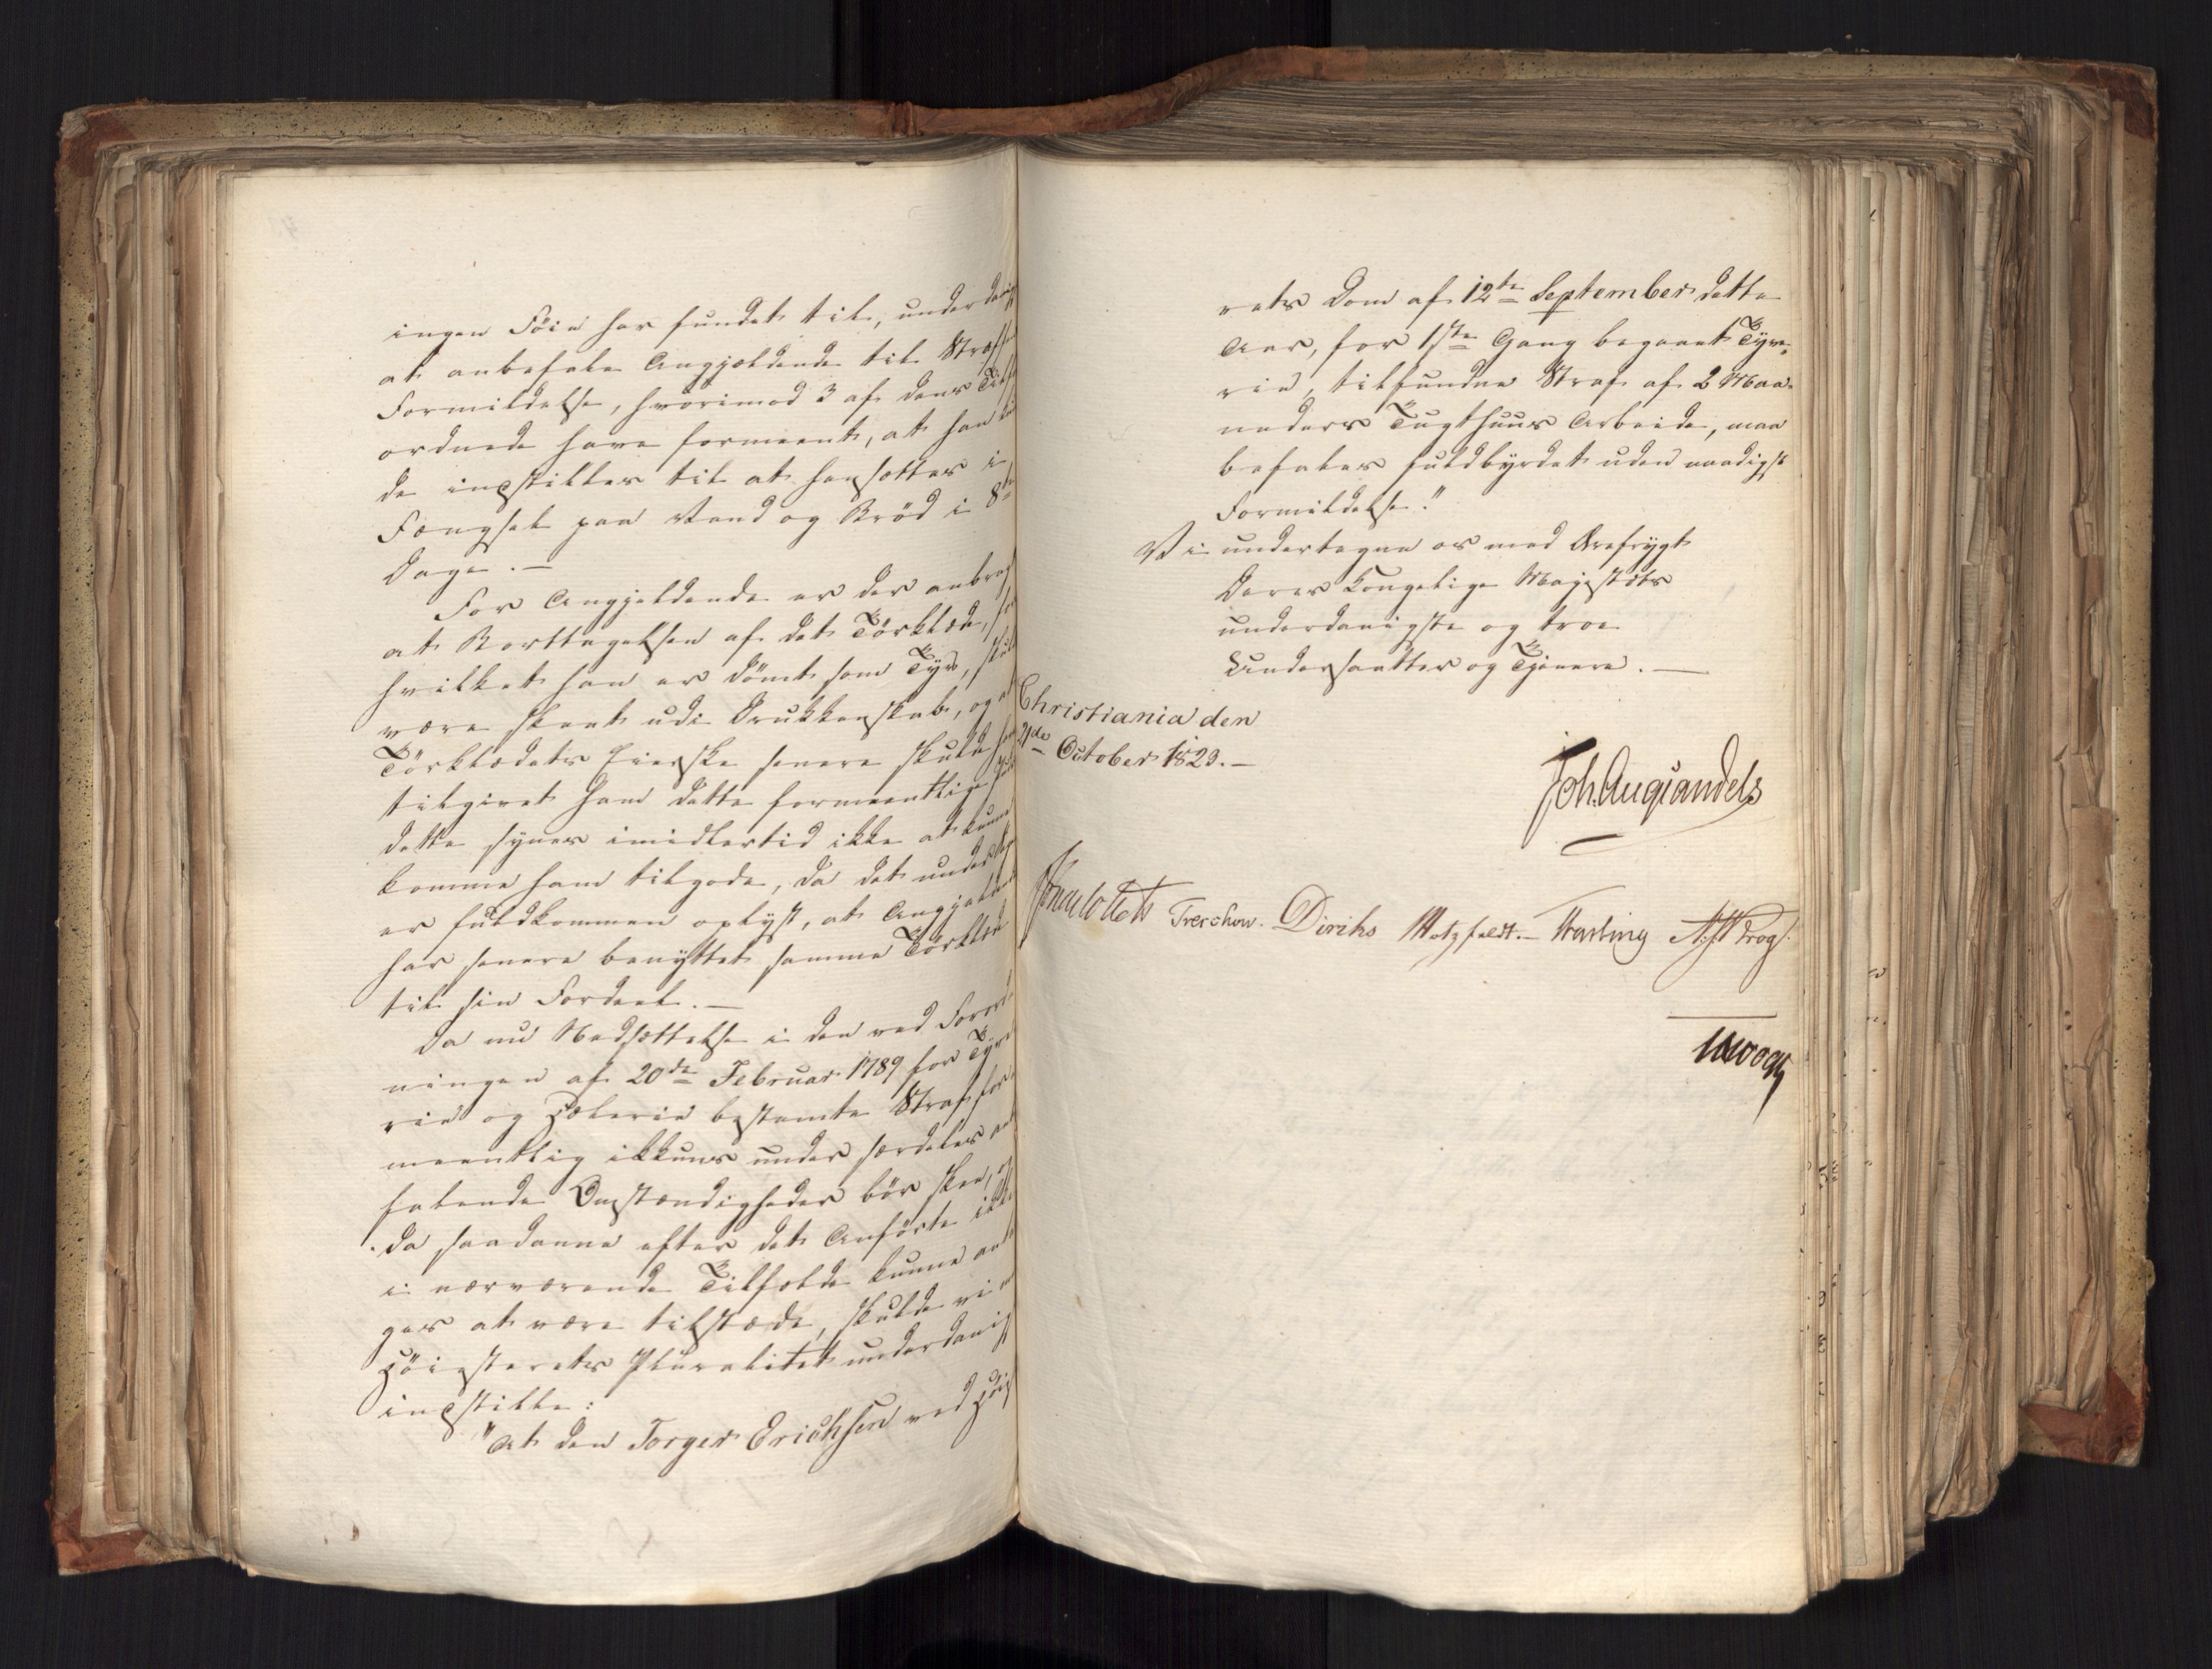 ingen Föie har fundet til, underdanigst
at anbefale Angjældende til Straffens
Formildelse, hvorimod 3 af dens Til¬
ordnede have formeent, at han bur¬
de inpstilles til at hensættes i
Fængsel paa Vand og Bröd i 8te
Dage. —
For Angjeldende er der anbragt
at Borttagelsen af det Törklæde, for
hvilket han er dömt som Tyv, skulde
være skeet udi Drukkenskab, og at
Törklædets Eierske senere skulde have
tilgivet ham dette formeentlige
dette synes imidlertid ikke at kunne
komme ham tilgode, da det under Sagen
er fuldkommen oplyst, at Angjeldende
har senere benyttet samme Törklæde
til sin Fordeel. —
Da nu Nedsættelse i den ved Forord¬
ningen af 20de Februar 1789 for Tyve¬
rie og Hælerie bestemte Straf for¬
meentlig ikkuns under særdeles anbe¬
falende Omstændigheder bör skee, og
da saadanne efter det Anförte ikke
i nærværende Tilfælde kunne anta¬
ges at være tilstæde, skulde vi med
Höiesterets Pluralitet underdanigst
inpstille:
"At den Torger Erichsen ved Höieste¬
rets Dom af 12te September dette
Aar, for 1ste Gang begaaet Tyve¬
rie, tilfundne Straf af 2 Maa¬
neders Tugthuus Arbeide, maa
befales fuldbyrdet uden naadigst
Formildelse."
Vi undertegne os med Ærefrygt
Deres Kongelige Majestæts
underdanigste og troe
Undersaatter og Tjenere. —
Christiania den
21de October 1823. —
Joh. Aug Sandels
Treschow. Diriks Motzfeldt. Fasting